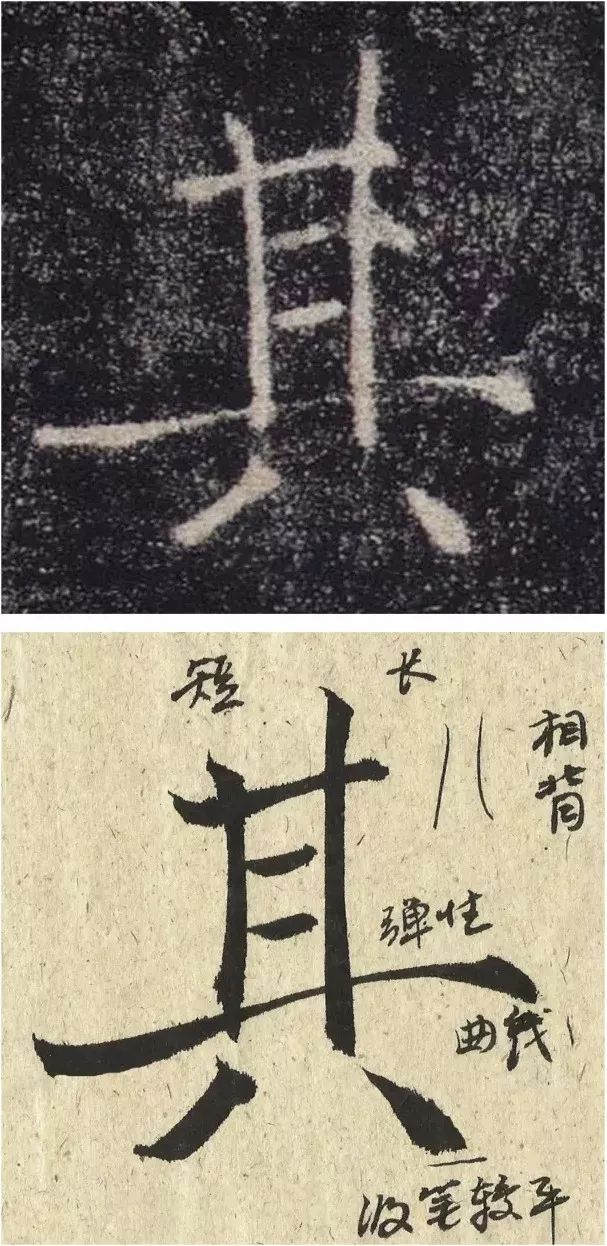 其
短 长
其
相背
弹性
曲线
收笔较平